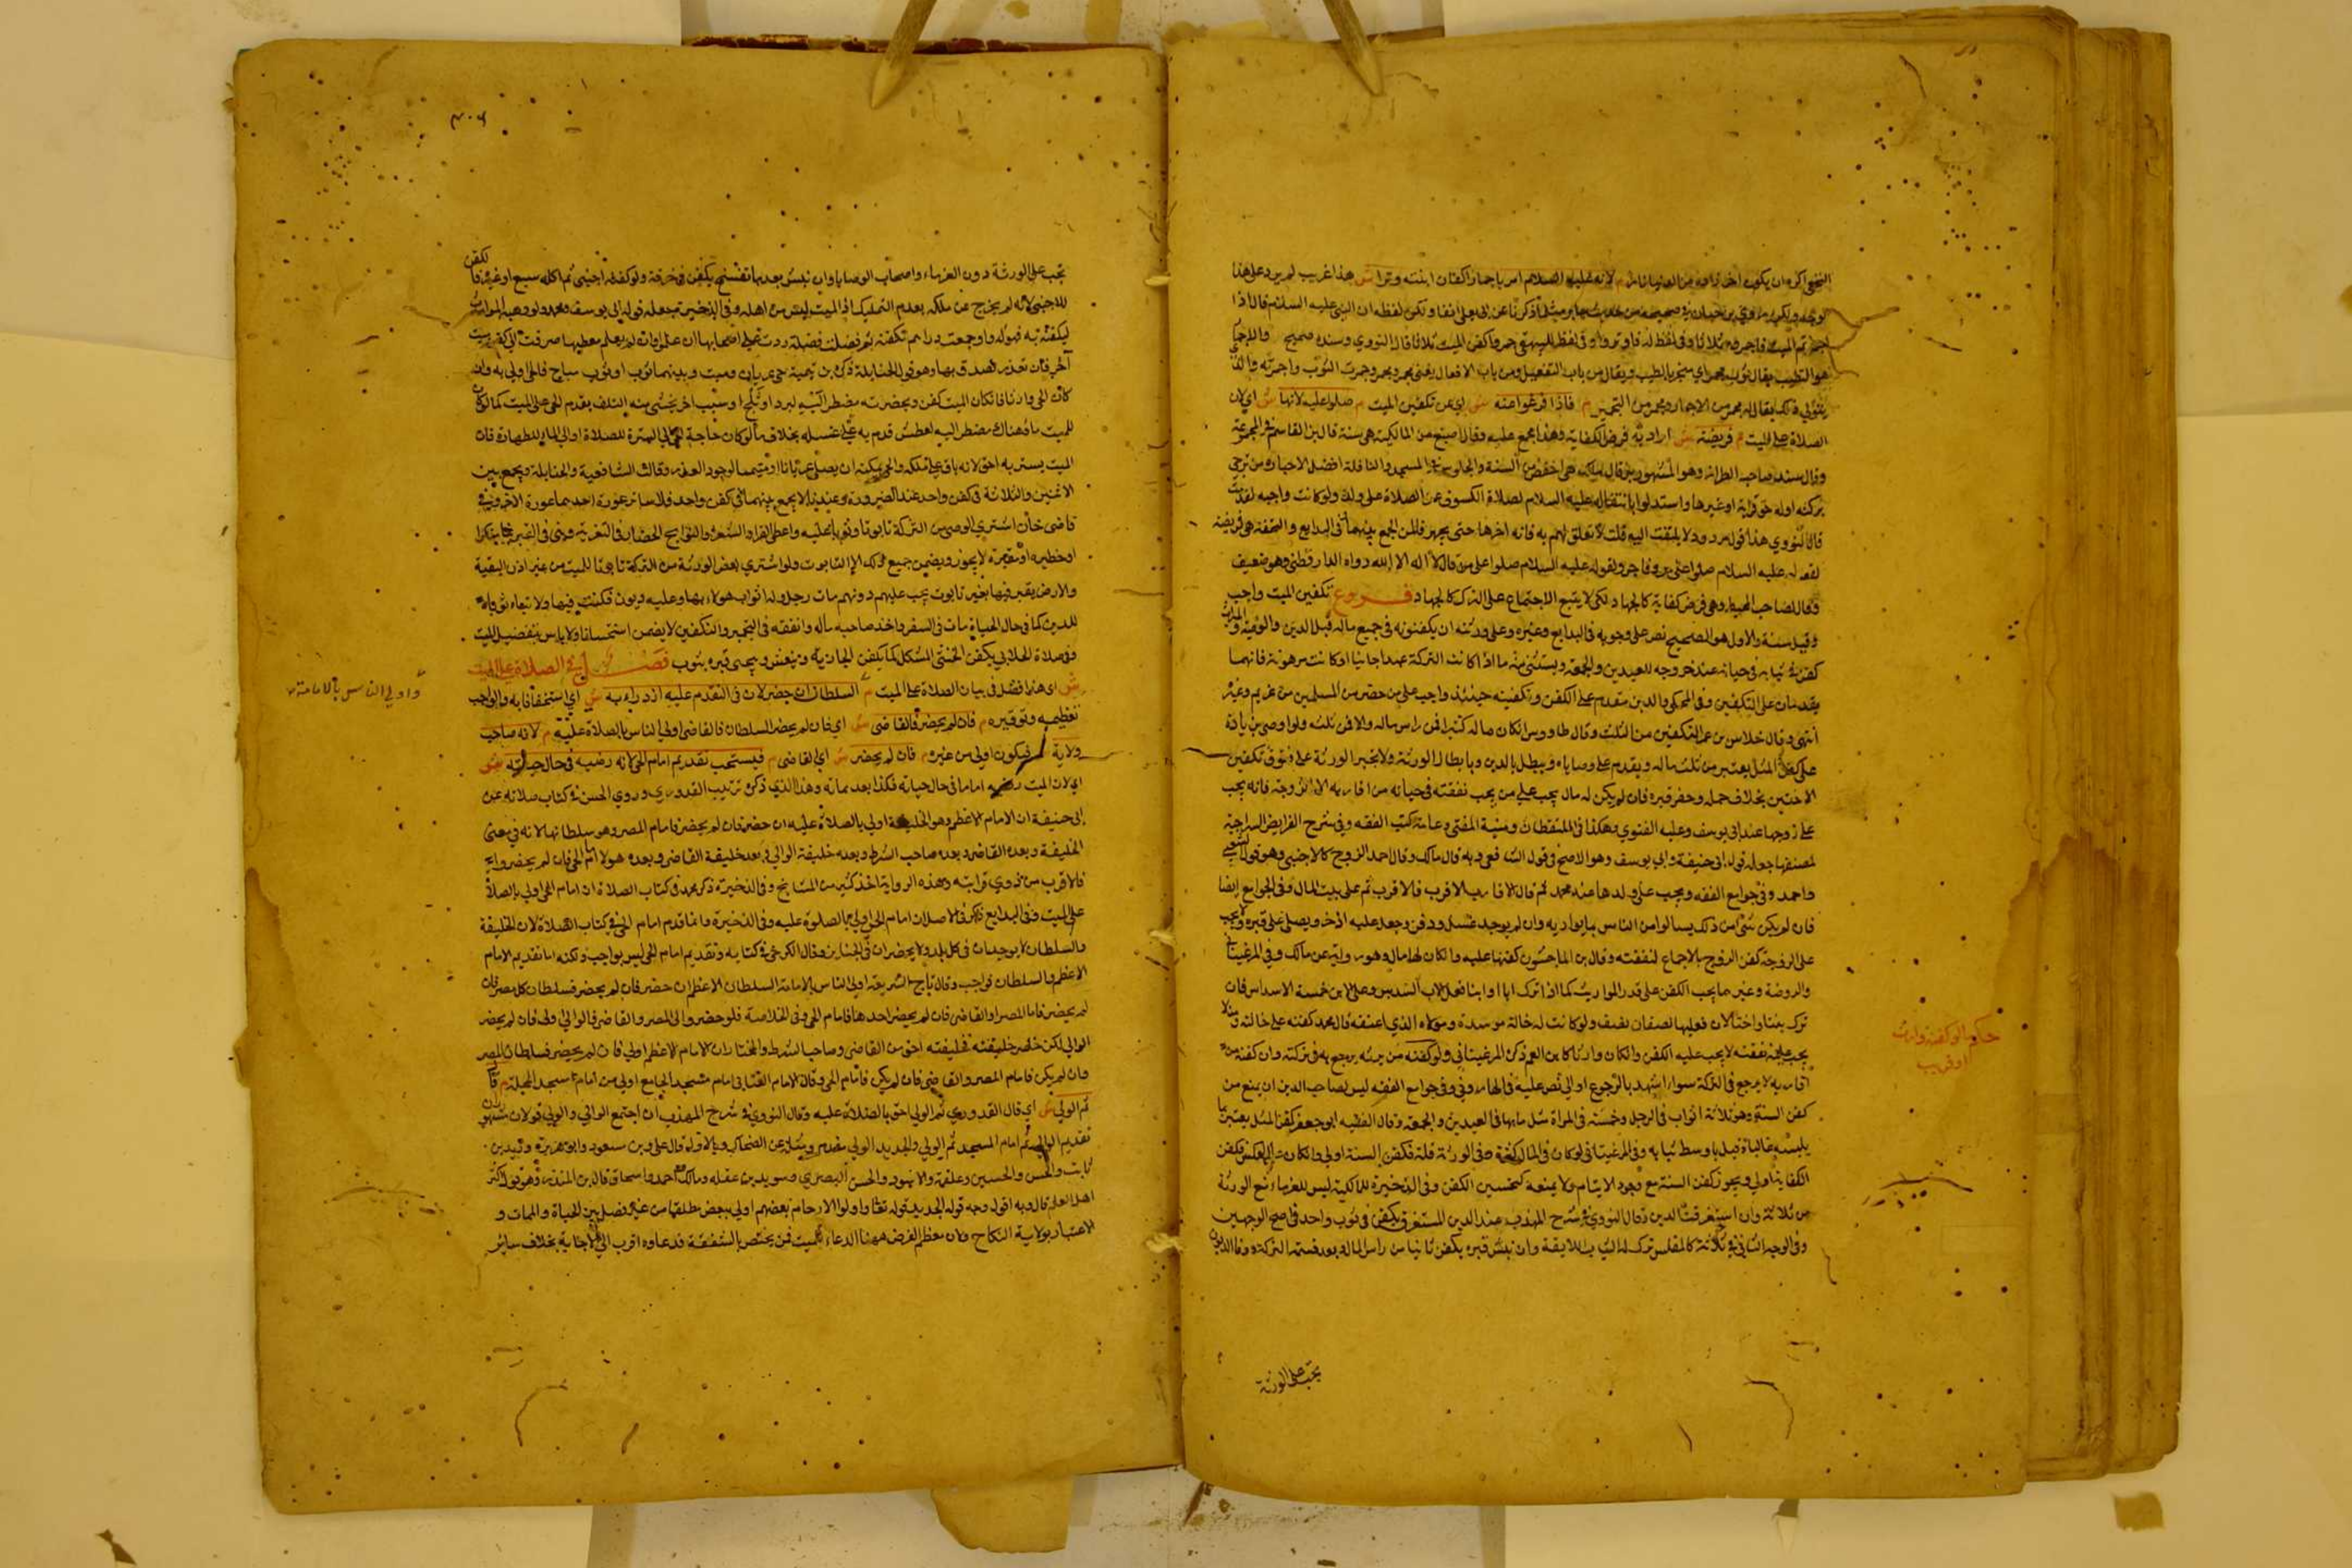 النخعي اكره ان يكون اخر زاده من الدنيا نارا م لانه عليه السلام امر باجمار اكفان ابنته وترا ش هذا غريب لم يرد على هذا
الوجه ولكن روى بن حبان في صحيحه من حديث جابر مثل ما ذكرنا عن ابي يعلى انفا ولكن لفظه ان النبي عليه السلام قال اذا
اجمرتم الميت فاجمروه ثلاثا وفي لفظ له فاوتروا وفي لفظ للبيهقي جمروا كفن الميت ثلاثا قال النووي وسنده صحيح والاجمار
هو التطييب يقال ثوب مجمر اي مبخر بالطيب ويقال من باب التفعيل ومن باب الافعال يعني يجمر ويجمر وجمرت الثوب واجمرته والذي
يتولى ذلك يقال له مجمر من الاجمار ومجمر من التجمير م فاذا فرغوا منه ش اي من تكفين الميت م صلوا عليه لانها ش اي لان
الصلاة على الميت م فريضة ش اراد به فرض الكفاية وهذا مجمع عليه وقال اصبغ من المالكية هي سنة قال بن القاسم في المجموعة
وقال سند صاحب الطراز وهو المشهور بن قال مالك هي اخفض من السنة والجلوس في المسجد والنافلة افضل الا جنازة من ترجى
بركته او له حق قرابة او غيرها واستدلوا بانتقاله عليه السلام لصلاة الكسوف عن الصلاة على ولده ولو كانت واجبة لقدمت
قال النووي هذا قول مردود لا يلتفت اليه قلت لا تعلق لهم به فانه اخرها حتى يجهز فامكن الجمع بينهما في البدايع والتحفة هي فريضة
لقوله عليه السلام صلوا على كل بر وفاجر ولقوله عليه السلام صلوا على من قال لا اله الا الله رواه الدارقطني وهو ضعيف
وقال صاحب المحيط وهي فرض كفاية كالجهاد لكن لا يتبع الاجتماع على الترك كالجهاد فروع تكفين الميت واجب
وقيل سنة والاول هو الصحيح نص على وجوبه في البدايع وغيره وعلى ورثته ان يكفنونه في جميع ماله قبل الدين والوصية والميراث
كفن في ثيابه في حياته عند خروجه للعيدين والجمعة ويستثنى منه ما اذا كانت التركة عبدا جانيا او كانت مرهونة فانهما
يقدمان على التكفين وفي المحلى والدين متقدم على الكفن وتكفينه حينئذ واجب على من حضر من المسلمين من غريم وغيره
انتهى وقال خلاس بن عمر التكفين من الثلث وقال طاووس ان كان ماله كثيرا فمن راس ماله والا فمن ثلثه ولو اوصى بزيادة
على كفن المثل يعتبر من ثلث ماله ويقدم على وصاياه ويبطل بالدين وبابطال الورثة ولا تجبر الورثة على فتوق تكفين
الاخنين بخلاف حمله وحفر قبره فان لم يكن له مال يجب على من يجب نفقته في حياته من اقاربه الا الزوجة فانه يجب
على زوجها عند ابي يوسف وعليه الفتوى وهكذا في الملتقطات ومنية المفتي وعامة كتب الفقه وفي شرح الفرايض السراجية
لمصنفها جعله قول ابي حنيفة وابي يوسف وهو الاصح في قول الشافعي وبه قال مالك وقال احمد الزوج كالاجنبي وهو قول الشعبي
واحمد وفي جوامع الفقه ويجب على ولدها عند محمد ثم قال الاقارب الاقرب فالاقرب ثم على بيت المال وفي الجوامع ايضا
فان لم يكن شي من ذلك يسالوا من الناس ما يواريه وان لم يوجد غسل ودفن وجعل عليه اذخر ويصلى على قبره ولا يجب
على الزوجة كفن الزوج بالاجماع لنفقته وقال بن الماجشون كفنها عليه وان كان لها مال وهو رواية عن مالك وفي المرغيناني
والروضة وغيرهما يجب الكفن على قدر المواريث كما اذا ترك ابا او ابنا فعلى الاب السدس وعلى الابن خمسة الاسداس فان
ترك بنتا واختا لاب فعليهما نصفان نصف ولو كانت له خالة موسدة ومولاه الذي اعتقه قال محمد كفنه على خالته
يجب عليه نفقته لا يجب عليه الكفن وان كان وارثا كابن العم ذكره المرغيناني ولو كفنه من يرثه يرجع به في تركته وان كفنه من
اقاربه لا يرجع في التركة سواء اشهد بالرجوع او لا نص عليه في الحاروني وفي جوامع الفقه ليس لصاحب الدين ان يمنع من
كفن السنة وهو ثلاثة اثواب في الرجل وخمسة في المراة مثل ما بها في العيدين والجمعة وقال الفقيه ابو جعفر كفن المثل يعتبر بما
يلبسه غالبا وقيل باوسط ثيابه وفي المرغيناني لو كان في المال كثرة وفي الورثة قلة فكفن السنة اولى وان كان على العكس فكفن
الكفاية اولى ويجوز كفن السنة مع وجود الايتام ولا يمنعه كتحسين الكفن وفي الذخيرة للمالكية ليس للغرماء منع الورثة
من ثلاثة وان استغرقت الدين وقال النووي في شرح المهذب عند الدين المستغرق يكفن في ثوب واحد في اصح الوجهين
وفي الوجه الثاني في ثلاثة كالمفلس ترك له الثياب اللايقة وان نبش قبره يكفن ثانيا من راس المال وبعد قسمة التركة ووفا الدين
تجب على الورثة
حكم ما لو كفنه وارث
او قريب
٣٠٦
تجب على الورثة دون الغرماء واصحاب الوصايا وان نبش بعد ما تفسخ يكفن في خرقة ولو كفنه اجنبي ثم اكله سبع او غيره فالكفن
للاجنبي لانه لم يخرج عن ملكه بعدم التمليك اذ الميت ليس من اهله وفي الذخيرة جعله قول ابي يوسف ومحمد ولو وهبه الوارث
ليكفنه به فهو له ولو جمعت دراهم تكفنه ثم فضلت فضلة ردت على اصحابها ان علم وان لم يعلم معطيها صرفت الى كفن ميت
آخر فان تعذر تصدق بها وهو قول الحنابلة ذكره بن تيمية حي عريان وميت وبينهما ثوب او ثوب مباح فالحي اولى به وان
كان الحي وارثا فان كان الميت كفن وبحضرته مضطر اليه لبرد او ثلج او سبب اخر يخشى منه التلف يقدم الحي على الميت كما لو كان
للميت ماء وهناك مضطر اليه لعطش قدم به على غسله بخلاف ما لو كان حاجة الحي الى السترة للصلاة او الى الماء للطهارة فان
الميت يستر به احق لانه باق على ملكه والحي يمكنه ان يصلي عريانا او متيمما لوجود العذر وقالت الشافعية والحنابلة ويجمع بين
الاثنين والثلاثة في كفن واحد عند الضرورة وعندنا لا يجمع بينهما في كفن واحد فلا ساتر عورة احدهما عورة الاخر وفي
قاضي خان اشترى الوصي من التركة تابوتا وثوبا عليه واعطى القراء والشعراء والنوايح الحضار في التعزية وبنى في القبر بناء منكرا
او حظيره او مقبرة لا يجوز ويضمن جميع ذلك الا التابوت ولو اشترى بعض الورثة من التركة تابوتا للميت من غير اذن البقية
والارض يقبر فيها بغير تابوت يجب عليهم دونهم مات رجل وله اثواب هو لابسها وعليه ديون فكفنت فيها ولا تباع ثوباه
للدين كما في حال الحياة مات في السفر واخذ صاحبه ماله وانفقه في التجهيز والتكفين لا يضمن استحسانا ولا باس بتفضيل الميت
وفي صلاة الجلابي يكفن الخنثى المشكل كما يكفن الجارية وينعش ويسجى قبره بثوب فصل في الصلاة على الميت
ش اي هذا فصل في بيان الصلاة على الميت م السلطان ان حضر لان في التقدم عليه ازدراء به ش اي استخفافا به والواجب
تعظيمه وتوقيره م فان لم يحضر فالقاضي ش اي فان لم يحضر السلطان فالقاضي اولى الناس بالصلاة عليه م لانه صاحب
ولاية فيكون اولى من غيره م فان لم يحضر ش اي القاضي م فيستحب تقديم امام الحي لانه رضيه في حال حياته ش
اي لان الميت رضيه اماما في حال حياته فكذا بعد مماته وهذا الذي ذكره ترتيب القدوري وروى الحسن في كتاب صلاته عن
ابي حنيفة ان الامام الاعظم وهو الخليفة اولى بالصلاة عليه ان حضر فان لم يحضر فامام المصر وهو سلطانها لانه في معنى
الخليفة وبعده القاضي وبعده صاحب الشرط وبعده خليفة الوالي وبعد خليفة القاضي وبعده هولا امام الحي فان لم يحضروا
فالاقرب من ذوي قرابته وبهذه الرواية اخذ كثير من المشايخ وفي الذخيرة ذكر محمد في كتاب الصلاة ان امام الحي اولى بالصلاة
على الميت وفي البدايع ذكر في الاصل ان امام الحي اولى بالصلوة عليه وفي الذخيرة وانما قدم امام الحي في كتاب الصلاة لان الخليفة
والسلطان لا يوجدان في كل بلد ولا يحضران في الجنايز وقال الكرخي في كتابه وتقديم امام الحي ليس بواجب ولكنه اما تقديم الامام
الاعظم والسلطان فواجب وقال تاج الشريعة اولى الناس بالامامة السلطان الاعظم ان حضر فان لم يحضر فسلطان كل مصر فان
لم يحضر فامام المصر او القاضي فان لم يحضر احدهما فامام الحي وفي الخلاصة فلو حضر والي المصر والقاضي فالوالي اولى فان لم يحضر
الوالي لكن حضر خليفته فخليفته احق من القاضي وصاحب الشرط والمختار ان الامام الاعظم اولى فان لم يحضر فسلطان المصر
وان لم يكن فامام المصر والقاضي فان لم يكن فامام الحي وقال الامام العتابي امام مسجد الجامع اولى من امام مسجد المحلة م قال
ثم الولي ش اي قال القدوري ثم الولي احق بالصلاة عليه وقال النووي في شرح المهذب ان اجتمع الوالي والولي قولان مشهوران
تقديم الوالي ثم امام المسجد ثم الولي والجديد الولي مقدم ويحكى عن الضحاك وبالاول قال علي وبن مسعود وابو هريرة وزيد بن
ثابت والحسن والحسين وعلقمة والاسود والحسن البصري وسويد بن غفلة ومالك واحمد واسحاق قال بن المنذر وهو قول اكثر
اهل العلم قال وبه اقول وجه قوله الجديد قوله تعالى واولوا الارحام بعضهم اولى ببعض مطلقا من غير فصل بين الحياة والممات و
الاعتبار بولاية النكاح ولان معظم الغرض ههنا الدعاء للميت فمن يختص بالشفقة فدعاوه اقرب الى الاجابة بخلاف ساير
واولى الناس بالامامة